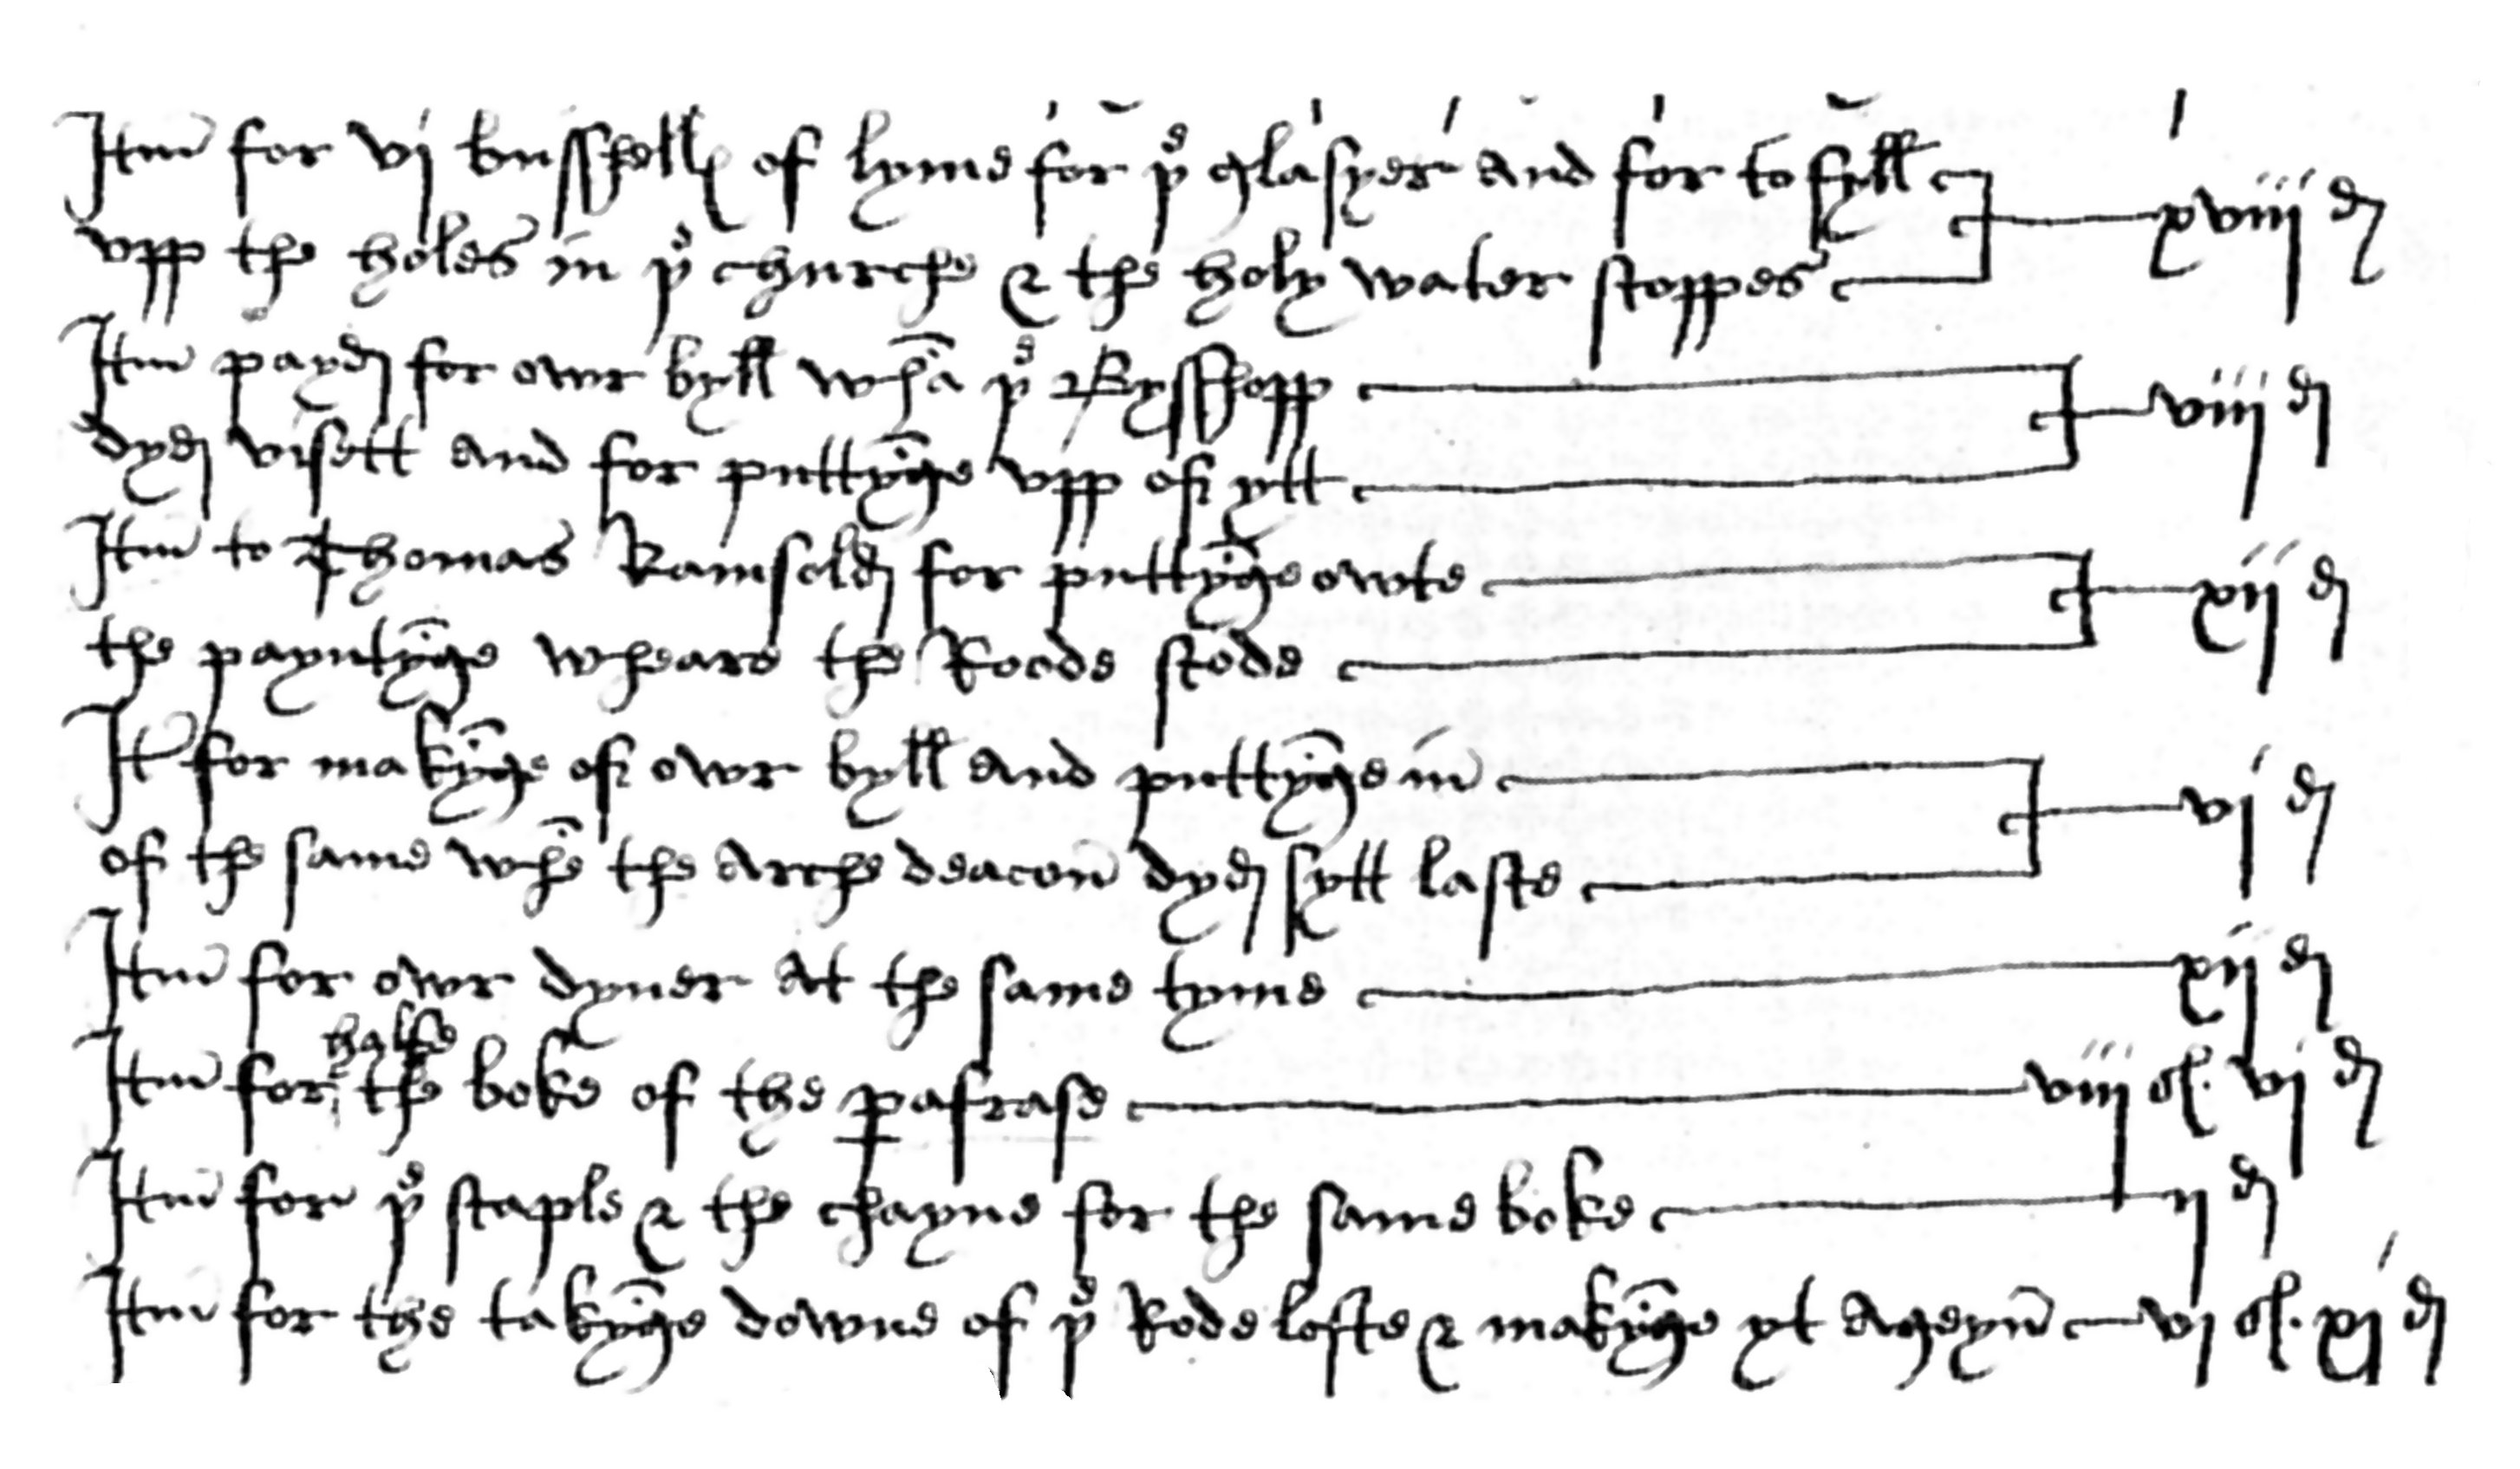 Itm̄ for vj busshellꝭ of lyme for yᵉ glasyer and for to fyll
vpp the holes in yᵉ churche & the holy water stoppes xviij d
Itm̄ payd for owr byll whā yᵉ Bysshopp
dyd visett and for puttyḡe vpp off ytt viij d
Itm̄ to Thomas Ramsold for puttyḡe owte
the payntyḡe wheare the Roode stode xij d
It for makyḡe off owr byll and puttyḡe in
of the same whē the arche deacon dyd sytt laste vj d
Itm̄ for owr dyner at the same tyme xij d
halfe
Itm̄ for the boke of the ꝑafrase viij s. vj d
Itm̄ for yᵉ staple & the chayne for the same boke ij d
Itm̄ for the takyḡe downe of yᵉ Rode lofte & makyḡe yt ageyn̄ vj s. xj d